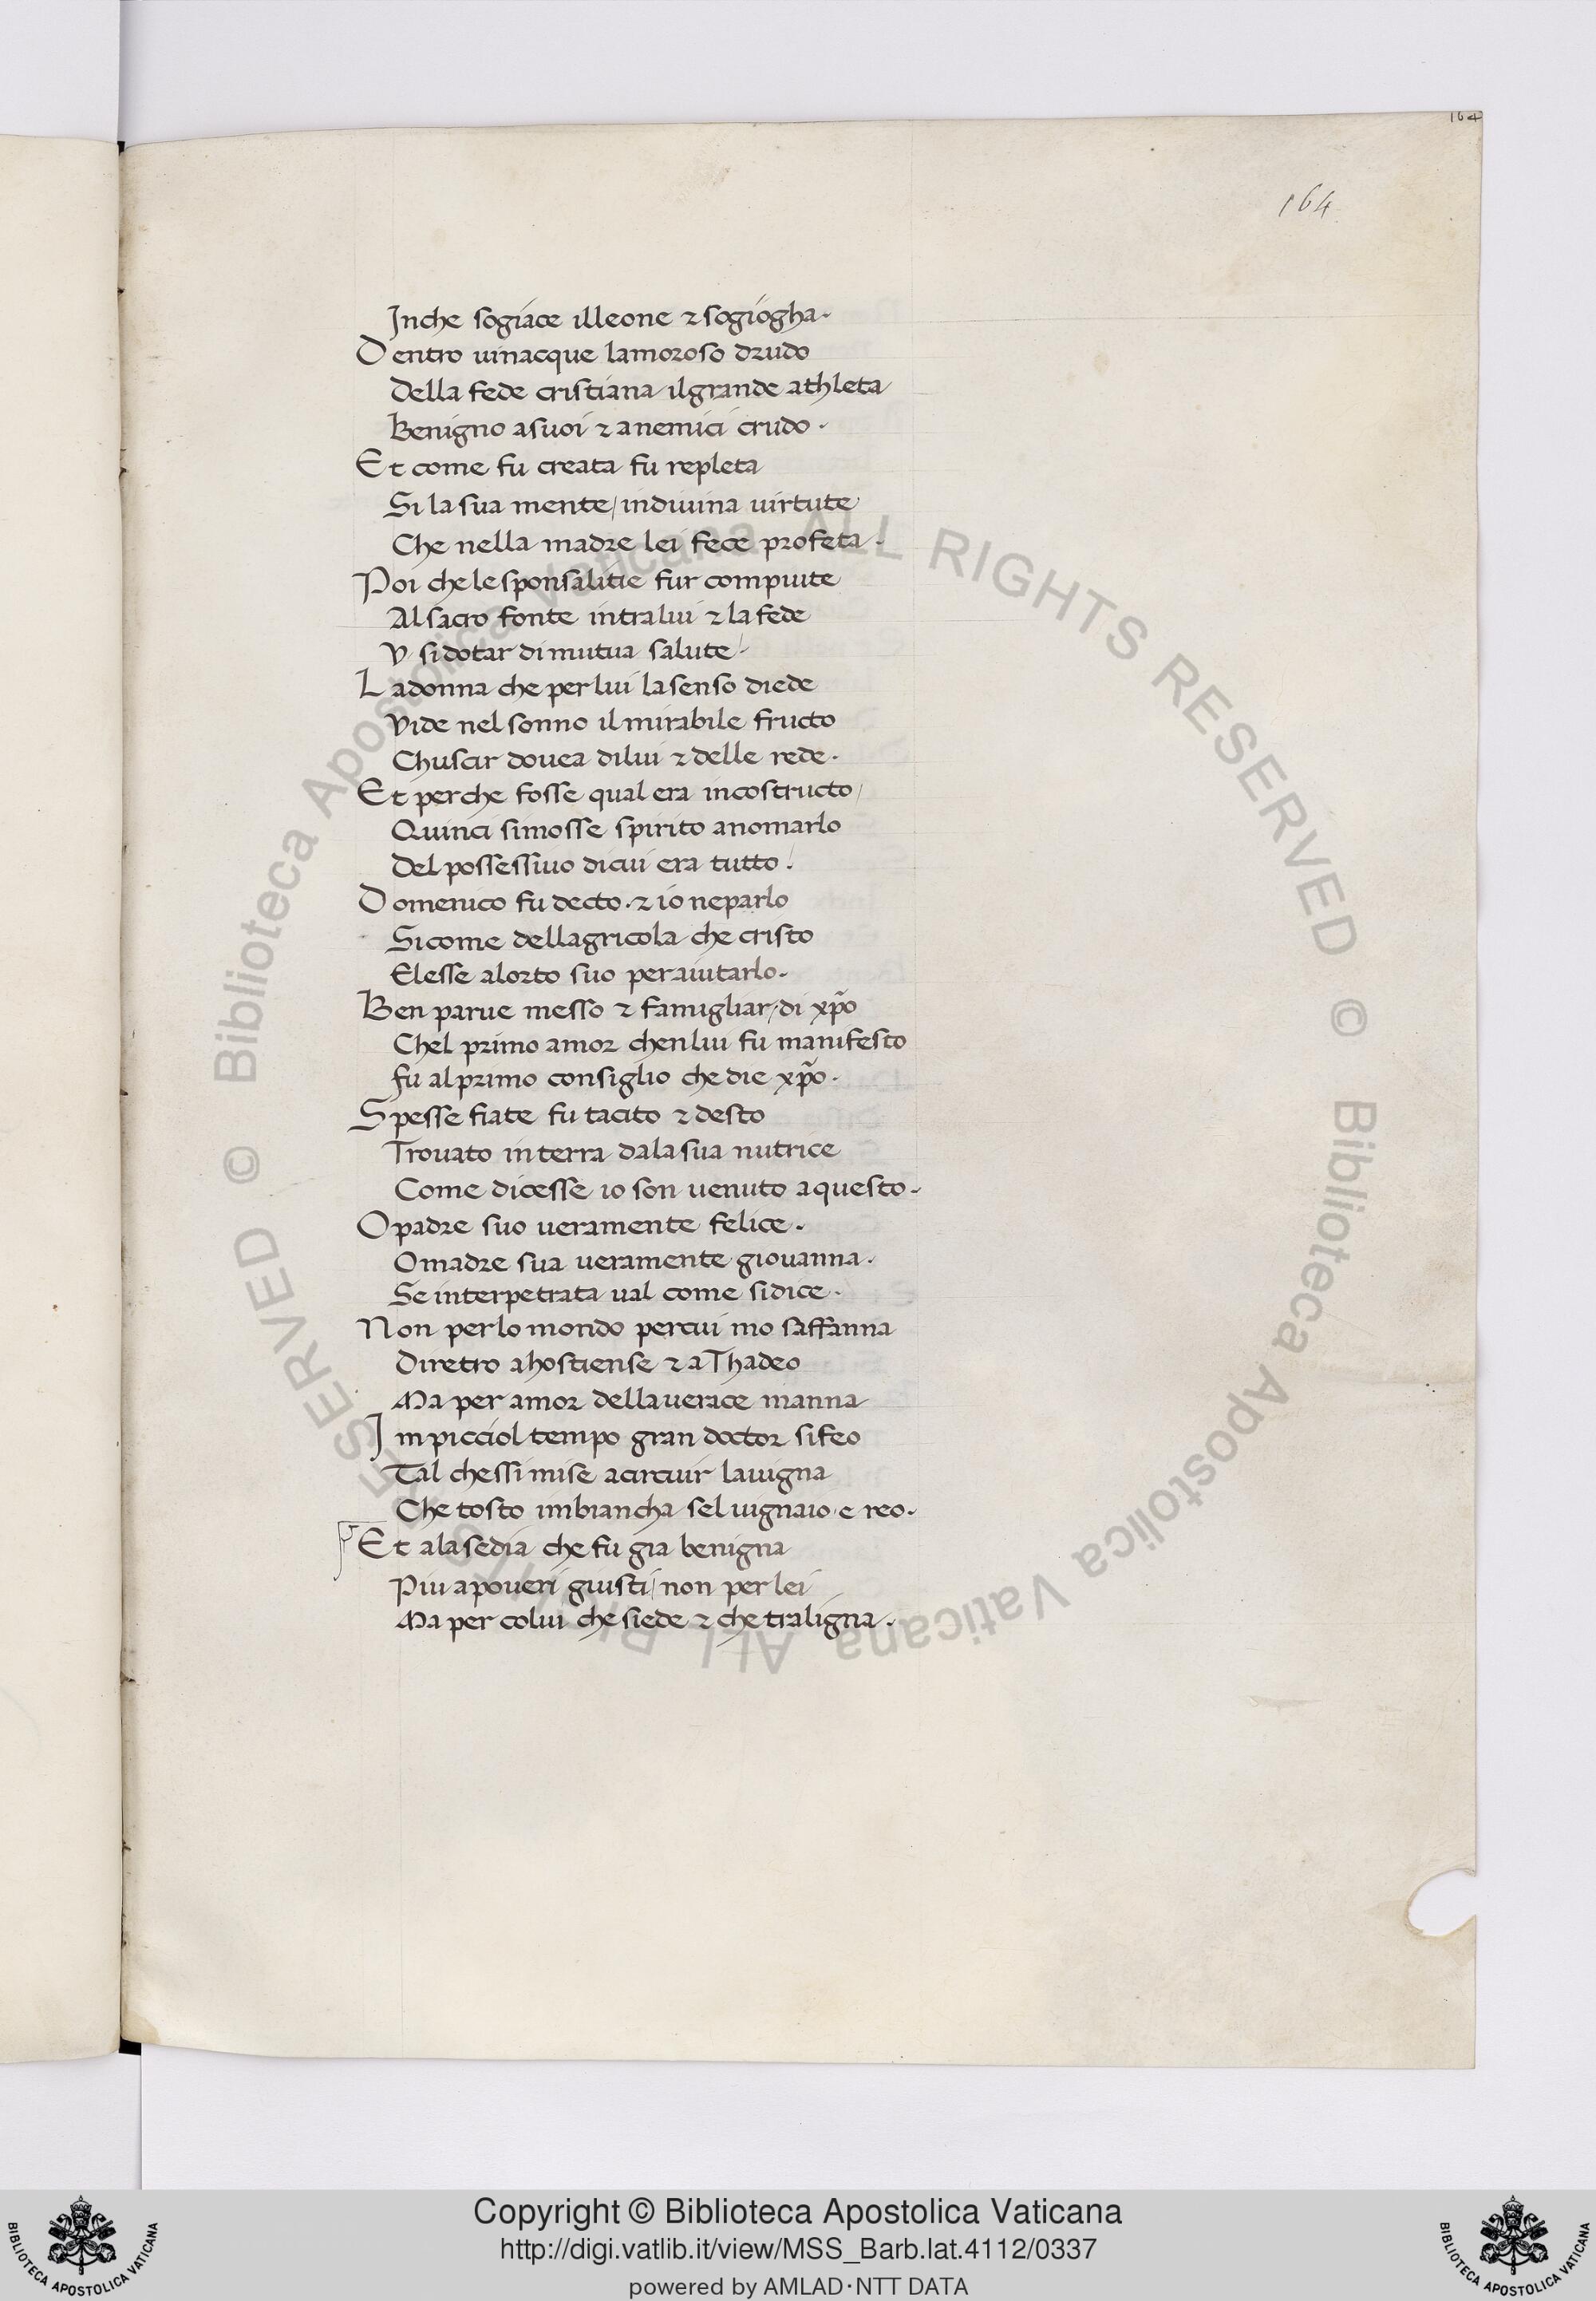 164
164
Jnche sogiace illeone ⁊ sogiogha.
Dentro uinacque lamoroso drudo
Della fede cristiana / ilgrande athleta
Benigno asuoi ⁊ anemici crudo.
Et come fu creata fu repleta
Si la sua mente / indiuina uirtute
Che nella madre lei fece profeta.
Poi che le sponsalitie fur compiute
Al sacro fonte intra lui ⁊ la fede
V si dotar di mutua salute.
La donna che per lui lasenso diede
Vide nel sonno il mirabile fructo
Chuscir douea di lui ⁊ delle rede.
Et perche fosse qual era incostructo
Quinci simosse spirito anomarlo
Del possessiuo dicui era tutto.
Domenico fu decto. ⁊ io neparlo
Sicome dellagricola che cristo
Elesse alorto suo peraiutarlo.
Ben parue messo ⁊ famigliar di xp̃o
Chel primo amor chenlui fu manifesto
fu alprimo consiglio che die xp̃o.
Spesse fiate fu tacito ⁊ desto
Trouato in terra dala sua nutrice
Come dicesse io son uenuto aquesto.
O padre suo ueramente felice.
O madre sua ueramente giouanna.
Se interpetrata ual come sidice.
Non perlo mondo percui mo saffanna
Diretro ahostiense ⁊ a Thadeo
Ma per amor dellauerace manna
Jn picciol tempo gran doctor sifeo
Tal chessi mise acircuir lauigna
Che tosto imbiancha sel uignaio e reo.
Et alasedia che fu gia benigna
Piu apoueri giusti / non per lei
Ma per colui che siede ⁊ che traligna.
Biblioteca Apostolica Vaticana ALL RIGHTS RESERVED ©
Biblioteca Apostolica Vaticana ALL RIGHTS RESERVED ©
Copyright © Biblioteca Apostolica Vaticana
http://digi.vatlib.it/view/MSS_Barb.lat.4112/0337
powered by AMLAD·NTT DATA
BIBLIOTECA APOSTOLICA VATICANA
BIBLIOTECA APOSTOLICA VATICANA